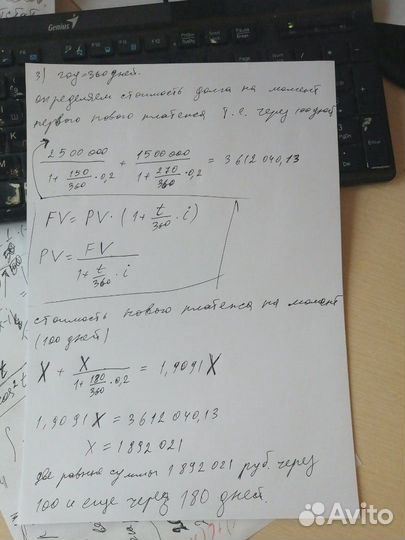 Genius
3) год=360 дней.
определяем стоимость долга на момент
первого нового платежа т.е. через 100 дней
2500 000 / (1+ 150/360 · 0.2) + 1500 000 / (1+ 270/360 · 0.2) = 3612 040,13
FV = PV · (1+ t/360 · i)
PV = FV / (1+ t/360 · i)
стоимость нового платежа на момент
(100 дней)
X + X / (1+ 180/360 · 0,2) = 1,9091X
1,9091X = 3612 040,13
X = 1892 021
две равные суммы 1892 021 руб. через
100 и еще через 180 дней.
Avito